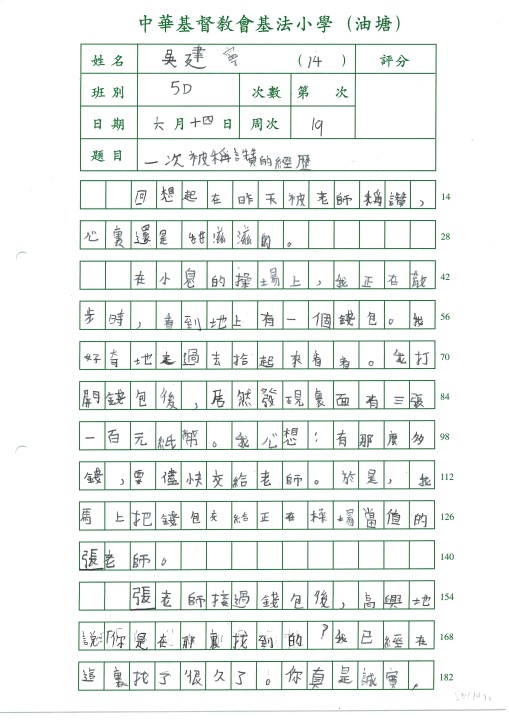 中華基督教會基法小學（油塘）
姓名 吳建 （14） 評分
班別 5D 次數 第 次
日期 六月十四日 周次 19
題目 一次被稱讚的經歷
回想起在昨天被老師稱讚， 14
心裏還是甜滋滋的。 28
在小息的操場上，我正在散 42
步時，看到地上有一個錢包。我 56
好奇地走過去拾起來看看。我打 70
開錢包後，居然發現裏面有三張 84
一百元紙幣。我心想：有那麼多 98
錢，要儘快交給老師。於是，我 112
馬上把錢包交給正在操場當值的 126
張老師。 140
張老師接過錢包後，高興地 154
說：「你是在那裏找到的？我已經在 168
這裏找了很久了。你真是誠實， 182